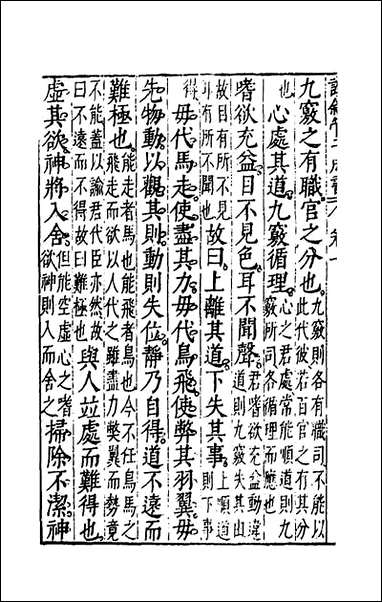 九竅之有職官之分也。九竅則各有職司不能以此代彼若百官之有其分
也心處其道。九竅循理。心之君處常能順道則九竅所司各循理而應也
嗜欲充益。目不見色。耳不聞聲。君嗜欲充益動違道則九竅失其由
故目有所不見耳有所不聞也故曰。上離其道。下失其事。上順道則下事
得毋代馬走。使盡其力。毋代鳥飛。使弊其羽翼。毋
先物動。以觀其則。動則失位。靜乃自得。道不遠而
難極也。能走者馬也能飛者鳥也今不任鳥馬之飛走而欲以人代之雖盡力弊翼而勢竟
不能蓋以諭君代臣亦然故曰不遠而不得故曰難極也與人竝處而難得也。
虛其欲。神將入舍。但能空虛心之嗜欲神則入而舍之掃除不潔。神